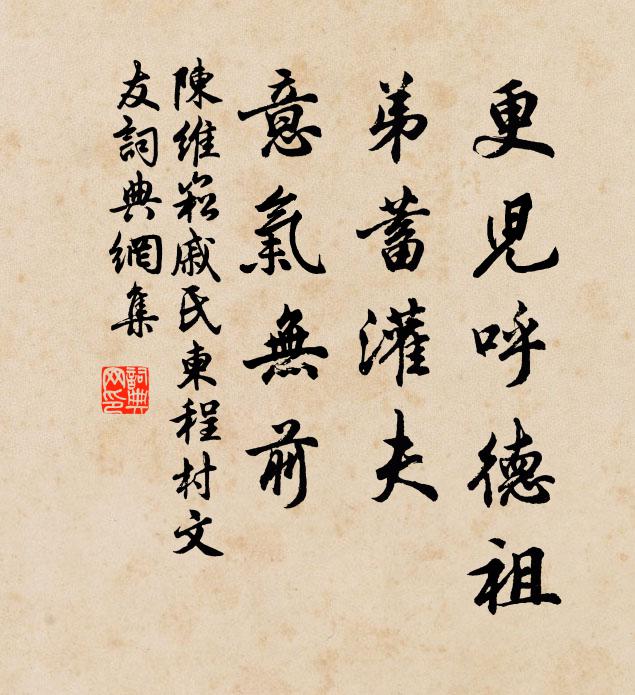 更兒呼德祖
弟蓄灌夫
意氣無前
陳維崧戚氏東程村文
友詞典網集
詞典
网印